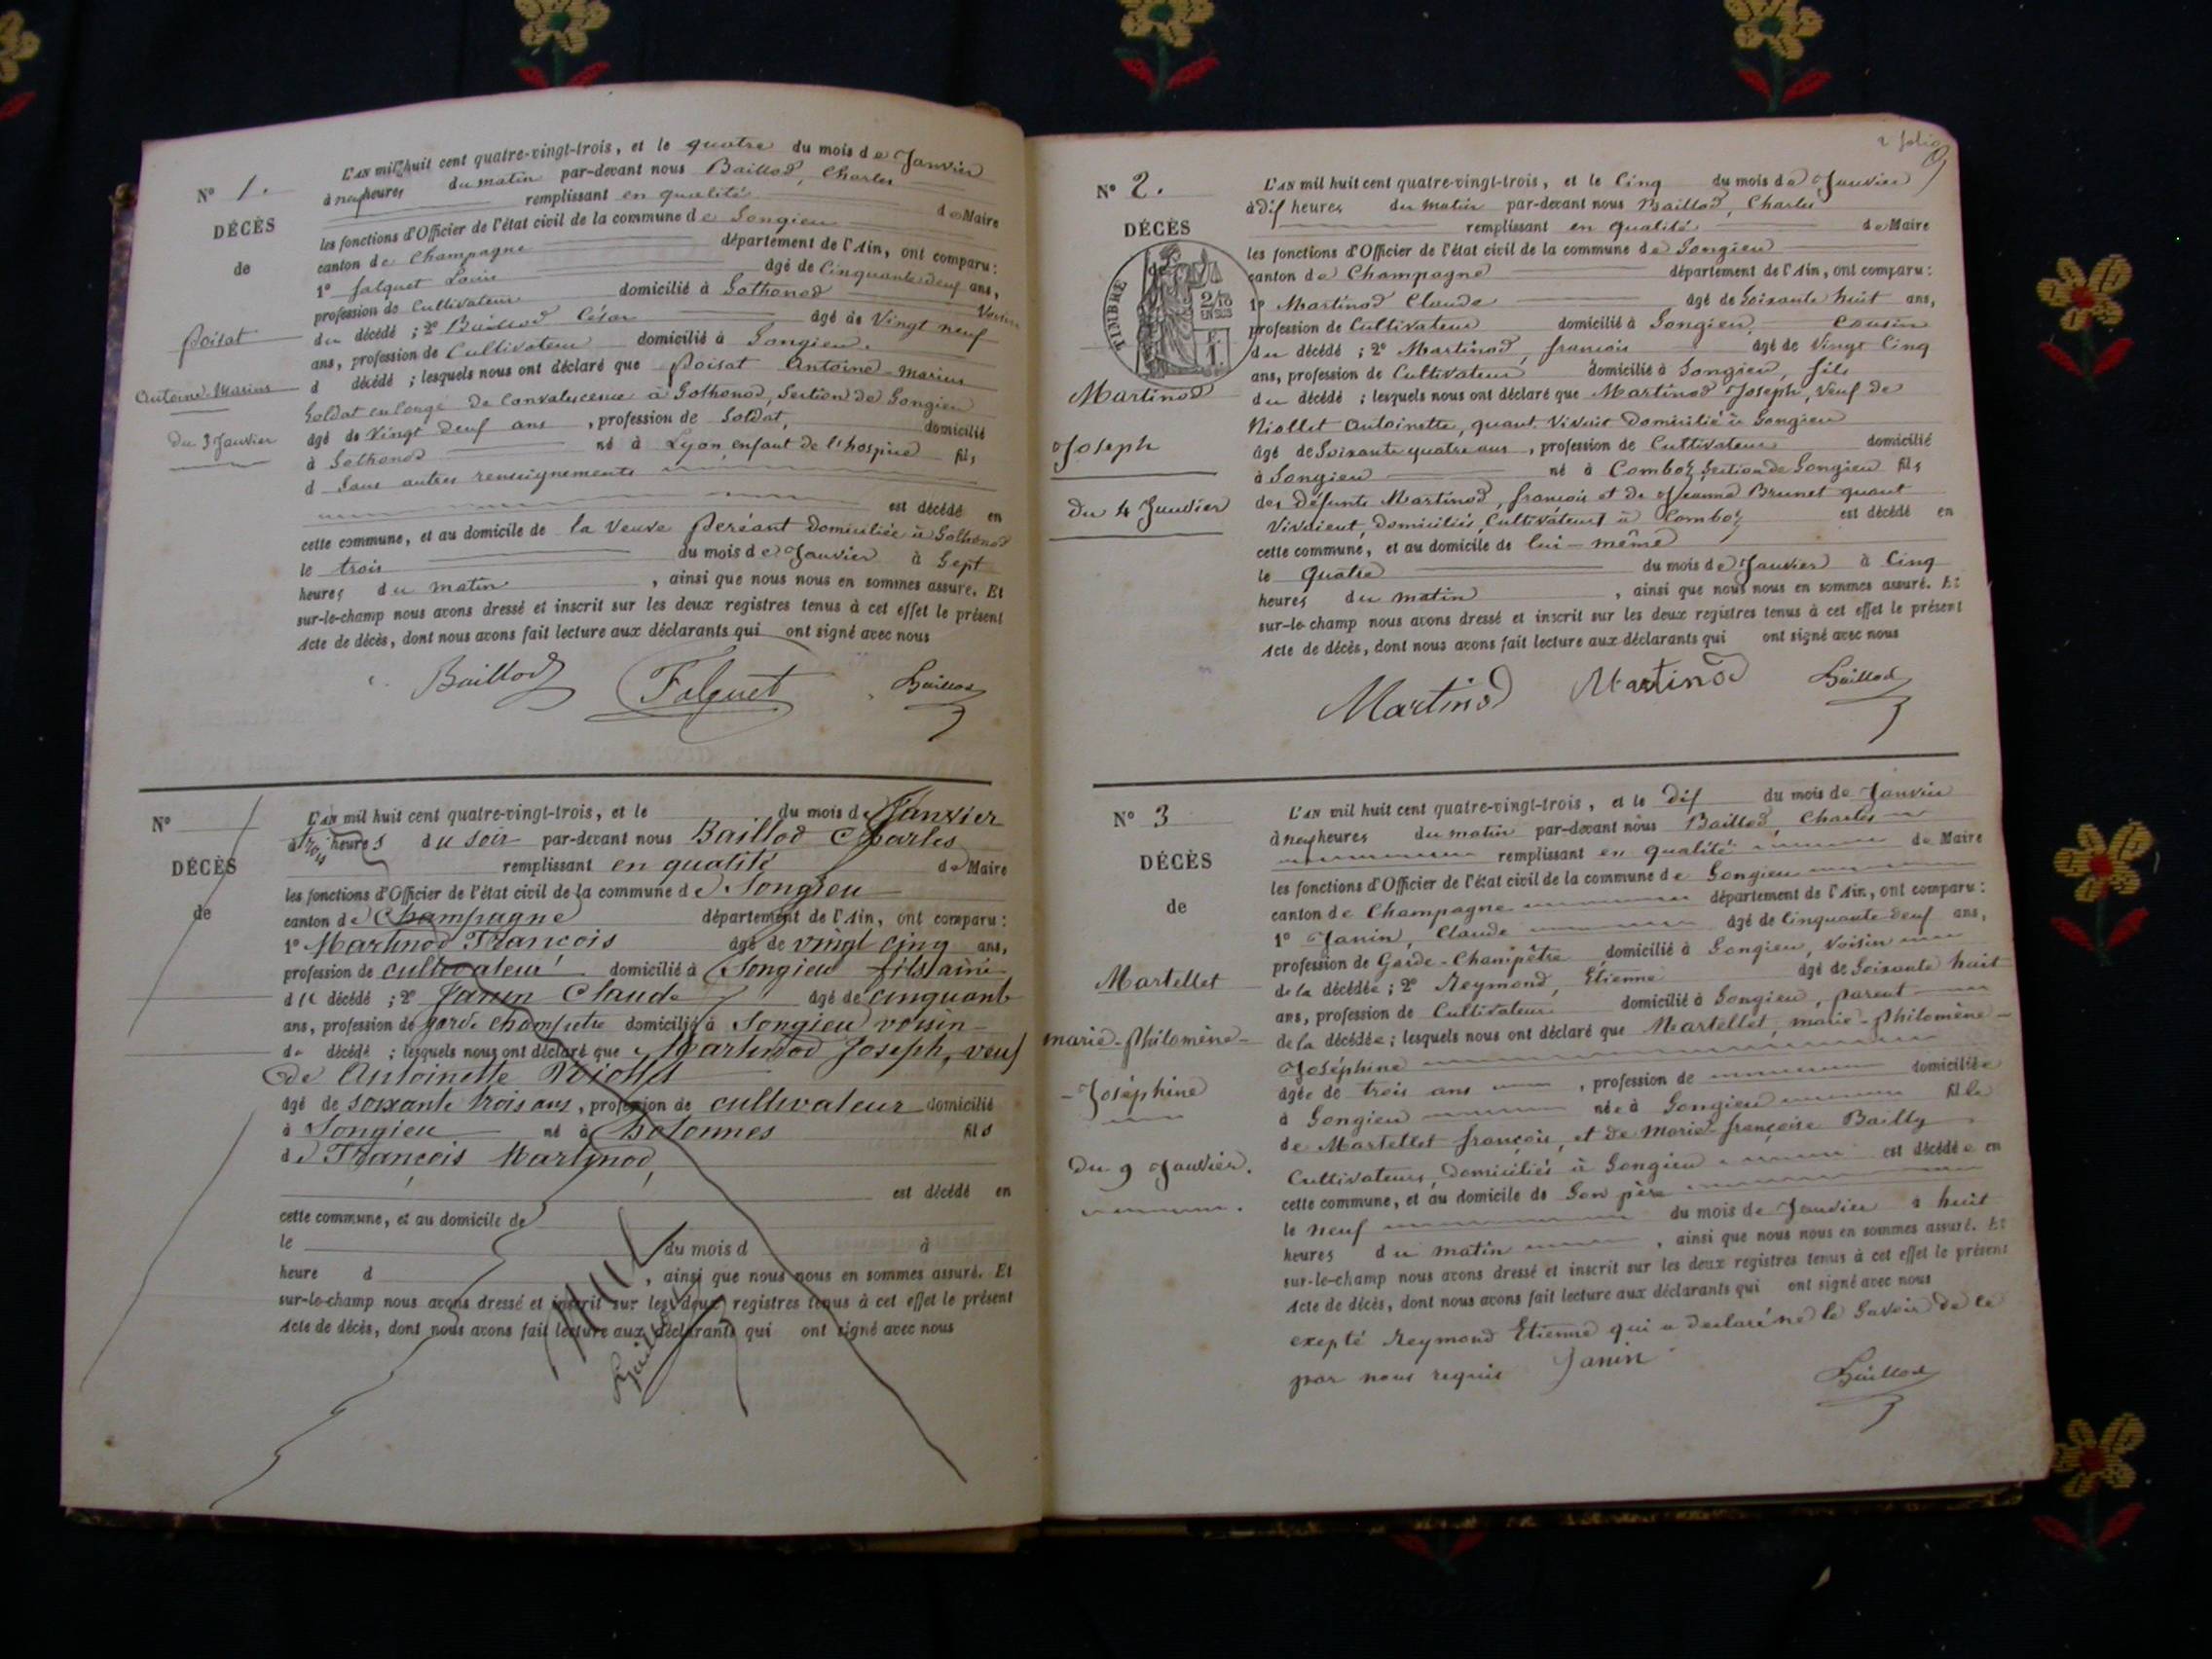 N° 1.
DÉCÈS
de
Poisat
Antoine-Marius
Du 3 Janvier
L'AN mil huit cent quatre-vingt-trois, et le quatre du mois de Janvier
à neuf heures du matin par-devant nous Baillod, Charles
remplissant en qualité de Maire
les fonctions d'Officier de l'état civil de la commune de Songieu
canton de Champagne département de l'Ain, ont comparu :
1° falquet Louis âgé de Cinquante deuf ans,
profession de Cultivateur domicilié à Sothonod Voisin
du décédé ; 2° Baillod César âgé de Vingt neuf
ans, profession de Cultivateur domicilié à Songieu.
d décédé ; lesquels nous ont déclaré que Poisat Antoine-Marius
Soldat en Congé de Convalescence à Sothonod, Section de Songieu
âgé de Vingt deuf ans, profession de Soldat, domicilié
à Sothonod né à Lyon, enfant de l'hospice fils
d Sans autres renseignements
est décédé en
cette commune, et au domicile de la Veuve domiciliée à Sothonod
le trois du mois de Janvier à Sept
heures du matin, ainsi que nous nous en sommes assuré. Et
sur-le-champ nous avons dressé et inscrit sur les deux registres tenus à cet effet le présent
Acte de décès, dont nous avons fait lecture aux déclarants qui ont signé avec nous
Baillod Falquet Baillod
N°
DÉCÈS
de
L'AN mil huit cent quatre-vingt-trois, et le du mois de Janvier
à trois heures du soir par-devant nous Baillod Charles
remplissant en qualité de Maire
les fonctions d'Officier de l'état civil de la commune de Songieu
canton de Champagne département de l'Ain, ont comparu :
1° Martinod François âgé de vingt cinq ans,
profession de cultivateur domicilié à Songieu fils ainé
du décédé ; 2° Janin Claude âgé de cinquante
ans, profession de garde champetre domicilié à Songieu voisin
du décédé ; lesquels nous ont déclaré que Martinod Joseph, veuf
de Antoinette Niollet
âgé de soixante trois ans, profession de cultivateur domicilié
à Songieu né à hotonnes fils
de François Martinod,
est décédé en
cette commune, et au domicile de
le du mois d à
heure d , ainsi que nous nous en sommes assuré. Et
sur-le-champ nous avons dressé et inscrit sur les deux registres tenus à cet effet le présent
Acte de décès, dont nous avons fait lecture aux déclarants qui ont signé avec nous
Nul
Baillod
2 folio
N° 2.
DÉCÈS
de
TIMBRE
2/10
EN SUS
Martinod
Joseph
du 4 Janvier
L'AN mil huit cent quatre-vingt-trois, et le Cinq du mois de Janvier
à dif heures du matin par-devant nous Baillod, Charles
remplissant en qualité de Maire
les fonctions d'Officier de l'état civil de la commune de Songieu
canton de Champagne département de l'Ain, ont comparu :
1° Martinod Claude âgé de Soixante huit ans,
profession de Cultivateur domicilié à Songieu, Cousin
du décédé ; 2° Martinod, françois âgé de Vingt Cinq
ans, profession de Cultivateur domicilié à Songieu, fils
du décédé ; lesquels nous ont déclaré que Martinod Joseph, Veuf de
Niollet Antoinette, quant Vivait Domicilié à Songieu
âgé de Soixante quatre ans, profession de Cultivateur domicilié
à Songieu né à Comboz Section de Songieu fils
des défunts Martinod, françois et de Jeanne Brunet quant
Vivaient, Domiciliés Cultivateurs à Comboz est décédé en
cette commune, et au domicile de lui-même
le Quatre du mois de Janvier à Cinq
heures du matin, ainsi que nous nous en sommes assuré. Et
sur-le-champ nous avons dressé et inscrit sur les deux registres tenus à cet effet le présent
Acte de décès, dont nous avons fait lecture aux déclarants qui ont signé avec nous
Martinod Martinod Baillod
N° 3
DÉCÈS
de
Martellet
marie-Philomène-
-Joséphine
Du 9 Janvier.
L'AN mil huit cent quatre-vingt-trois, et le dif du mois de Janvier
à neuf heures du matin par-devant nous Baillod, Charles
remplissant en qualité de Maire
les fonctions d'Officier de l'état civil de la commune de Songieu
canton de Champagne département de l'Ain, ont comparu :
1° Janin, Claude âgé de Cinquante deuf ans,
profession de Garde-Champêtre domicilié à Songieu, Voisin
de la décédée ; 2° Reymond, Etienne âgé de Soixante huit
ans, profession de Cultivateur domicilié à Songieu, parent
de la décédée ; lesquels nous ont déclaré que Martellet, marie-Philomène-
Joséphine
âgée de trois ans, profession de domiciliée
à Songieu née à Songieu fille
de Martellet françois, et de Marie-françoise Bailly
Cultivateurs, Domiciliés à Songieu est décédée en
cette commune, et au domicile de Son père
le neuf du mois de Janvier à huit
heures du matin, ainsi que nous nous en sommes assuré. Et
sur-le-champ nous avons dressé et inscrit sur les deux registres tenus à cet effet le présent
Acte de décès, dont nous avons fait lecture aux déclarants qui ont signé avec nous
exepté Reymond Etienne qui a déclaré ne le Savoir de ce
par nous requis Janin Baillod